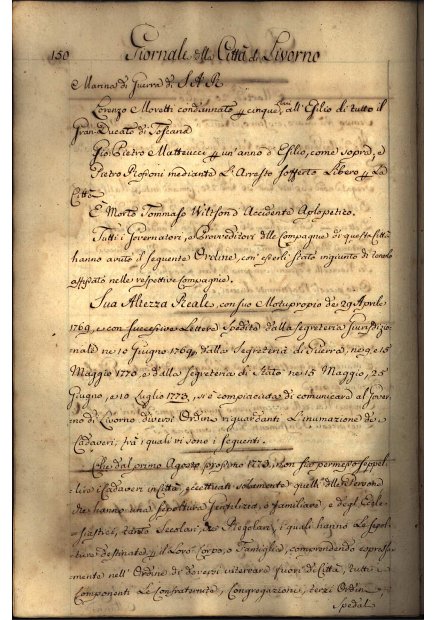 150 Giornali della Città di Livorno
e Marina di Guerra di S.A.R
Lorenzo Morotti condannato per cinque anni all'Esilio di tutto il
Gran Ducato di Toscana
Gio: Pietro Matteucci per un'anno d'Esilio, come sopra, e
Pietro mediante L'Arresto sofferto Libero per La
Città
È Morto Tommaso d'Accidente Apopletico.
Tutti i Governatori, e Provveditori delle Compagnie di questa Città
hanno avuto il seguente Ordine, con esserli stato ingiunto di tenerlo
affissato nelle respettive Compagnie.
Sua Altezza Reale, con suo Motuproprio de' 29 Aprile
1769, e con successive Lettere Spedite dalla Segreteria Giurisdizio
nale ne' 10 Giugno 1769, dalla Segreteria di Guerra, ne' 9, e 15
Maggio 1770, e dalla Segreteria di Stato ne' 15 Maggio, 25
Giugno, e 10 Luglio 1773, si è compiaciuta di comunicare al Gover
no di Livorno diversi Ordini riguardanti L'inumazione de'
Cadaveri, frà i quali vi sono i seguenti.
Che dal primo Agosto prossimo 1773, non sia permesso seppel
lire i Cadaveri in Città, eccettuati solamente quelli delle Persone
che hanno una sepoltura gentilizia, o familiare, e degl'Eccle
siastici, tanto Secolari, che Regolari, i quali hanno La sepol
tura destinata per il Loro Corpo, o Famiglia, comprendendo espressa
mente nell'Ordine di doversi interrare fuori di Città, tutti i
Componenti Le Confraternite, Congregazioni, terzi Ordini,
Spedal